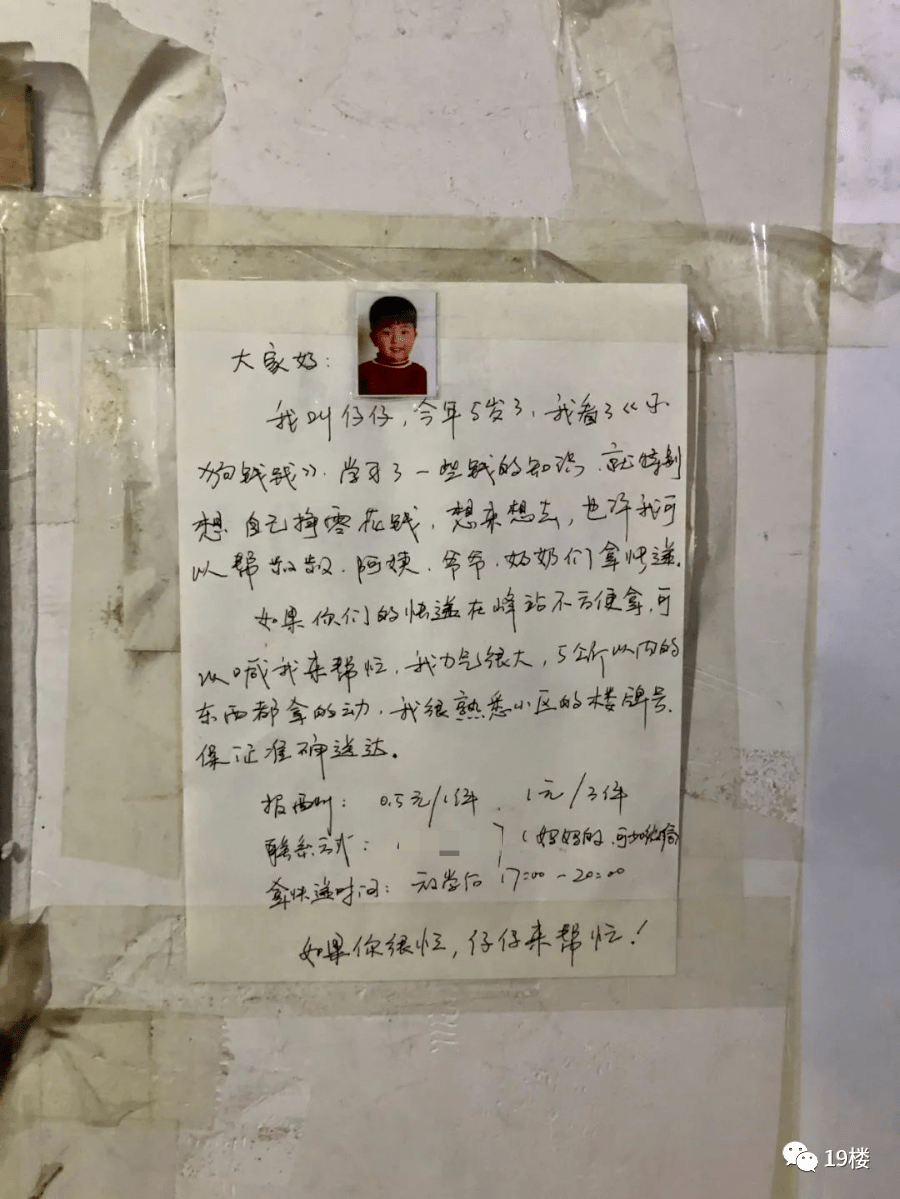 大家好：
我叫仔仔，今年5岁了，我看了《小
狗钱钱》，学习了一些钱的知识，就特别
想自己挣零花钱，想来想去，也许我可
以帮叔叔、阿姨、爷爷、奶奶们拿快递。
如果你们的快递在峰站不方便拿，可
以喊我来帮忙，我力气很大，5公斤以内的
东西都拿的动，我很熟悉小区的楼牌号，
保证准确送达。
报酬：0.5元/1件、1元/3件
联系方式：（妈妈的，可加微信）
拿快递时间：放学后 17:00-20:00
如果你很忙，仔仔来帮忙！
19楼